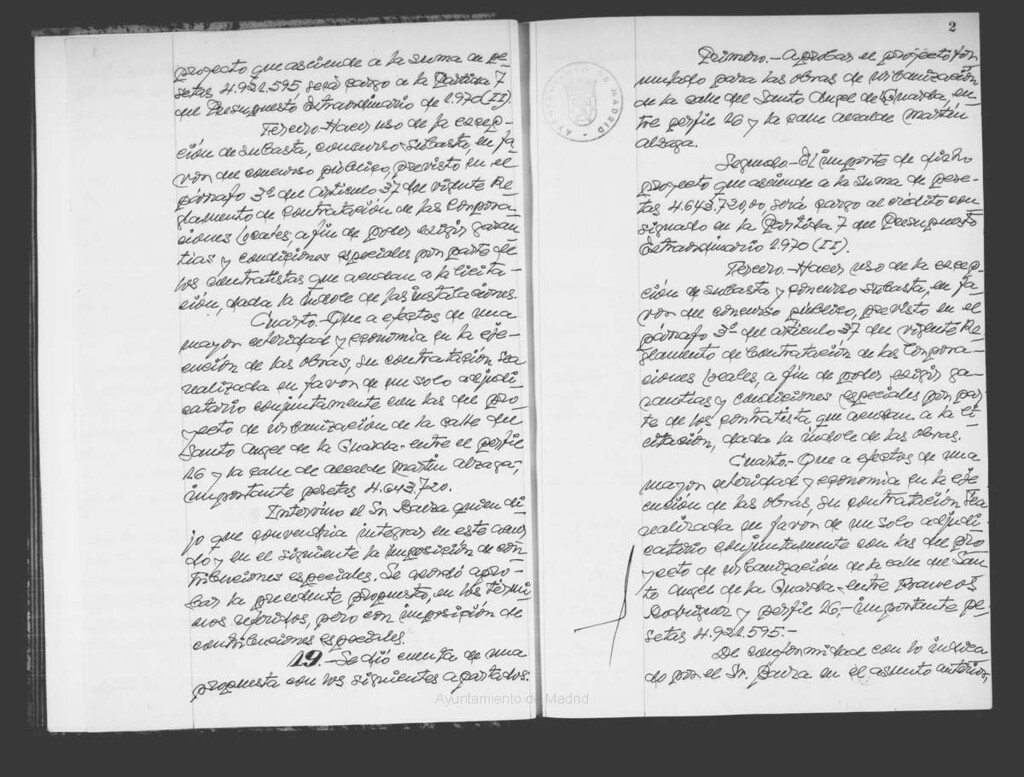 proyecto que asciende a la suma de pe-
setas 4.921.595 será cargo a la Partida 7
del Presupuesto Extraordinario de 1.970 (II).
Tercero.-Hacer uso de la excep-
ción de subasta, concurso-subasta, en fa-
vor de concurso público, previsto en el
párrafo 3º del Artículo 37 del vigente Re-
glamento de Contratación de las Corpora-
ciones Locales, a fin de poder exigir garan-
tías y condiciones especiales por parte de
los contratistas que acudan a la licita-
ción, dada la índole de las instalaciones.
Cuarto.-Que a efectos de una
mayor celeridad y economía en la eje-
cución de las obras, su contratación sea
realizada en favor de un solo adjudi-
catario conjuntamente con las del pro-
yecto de urbanización de la calle del
Santo Angel de la Guarda-entre el perfil
16 y la calle de alcalde Martín Alzaga,
importante pesetas 4.643.720.
Intervino el Sr. quien di-
jo que convendría integrar en este acuer-
do y en el siguiente la imposición de con-
tribuciones especiales. Se acordó apro-
bar la precedente propuesta, en los térmi-
nos referidos, pero con imposición de
contribuciones especiales.
19.-Se dió cuenta de una
propuesta con los siguientes apartados:
2
AYUNTAMIENTO DE MADRID
Primero.-Aprobar el proyecto for-
mulado para las obras de urbanización
de la calle del Santo Angel de Guarda, en-
tre perfil 26 y la calle alcalde Martín
Alzaga.
Segundo.-El importe de dicho
proyecto que asciende a la suma de pese-
tas 4.643.720,00, será cargo al crédito con-
signado en la Partida 7 del Presupuesto
Extraordinario 1.970 (II).
Tercero.-Hacer uso de la excep-
ción de subasta y concurso subasta, en fa-
vor del concurso público, previsto en el
párrafo 3º del artículo 37 del vigente Re-
glamento de Contratación de las Corpora-
ciones Locales, a fin de poder exigir ga-
rantías y condiciones especiales por par-
te de los contratista que acudan a la li-
citación, dada la índole de las obras.
Cuarto.-Que a efectos de una
mayor celeridad y economía en la eje-
cución de las obras, su contratación sea
realizada en favor de un solo adjudi-
catario conjuntamente con las del pro-
yecto de urbanización de la calle de San-
to Angel de la Guarda-entre Francos
Rodriguez y perfil 26,-importante pe-
setas 4.921.595.-
De conformidad con lo indica-
do por el Sr. en el asunto anterior,
Ayuntamiento de Madrid